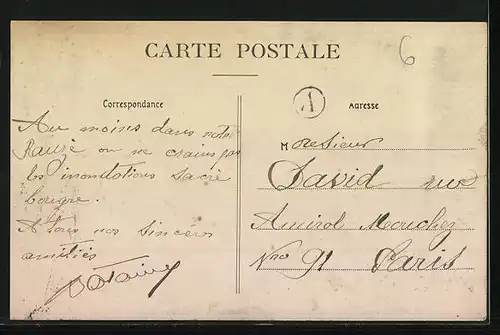 CARTE POSTALE
6
Correspondance
A
Adresse
Au moins dans notre
on ne crains pas
les inondations sacré
bougre.
A tous nos sincères
amitiés
Monsieur
David rue
Amiral Mouchez
No 91 Paris